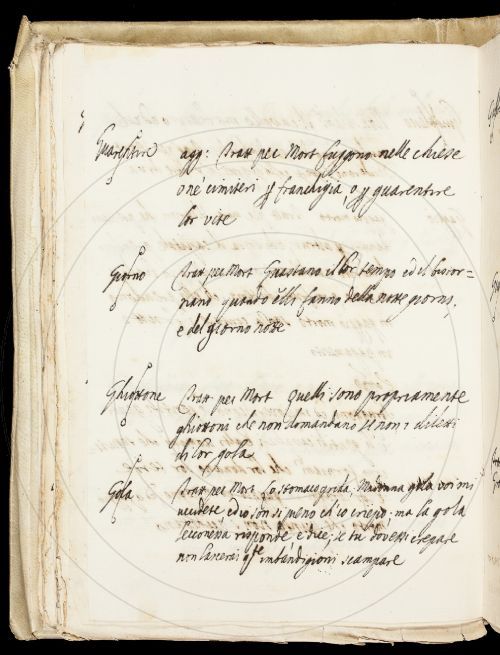 Guarentire agg: Tratt pec Mort fuggono nelle chiese
o né cimiteri p franchigia, o p guarentire
lor vite
Giorno Tratt pec Mort Guastano il lor tempo ed il bistor=
nano quãdo elli fanno della notte giorno,
e del giorno notte
Ghiottone Tratt pec Mort Quelli sono propriamente
ghiottoni che non domandano se non i diletti
di lor gola
Gola Tratt pec Mort Lo stomaco grida, Madonna gola voi mi
uccidete ed io son sì pieno ch'io criepo. ma la gola
leccone\a risponde e dice; se tu dovessi crepare
non lascerai imbandigioni scampare